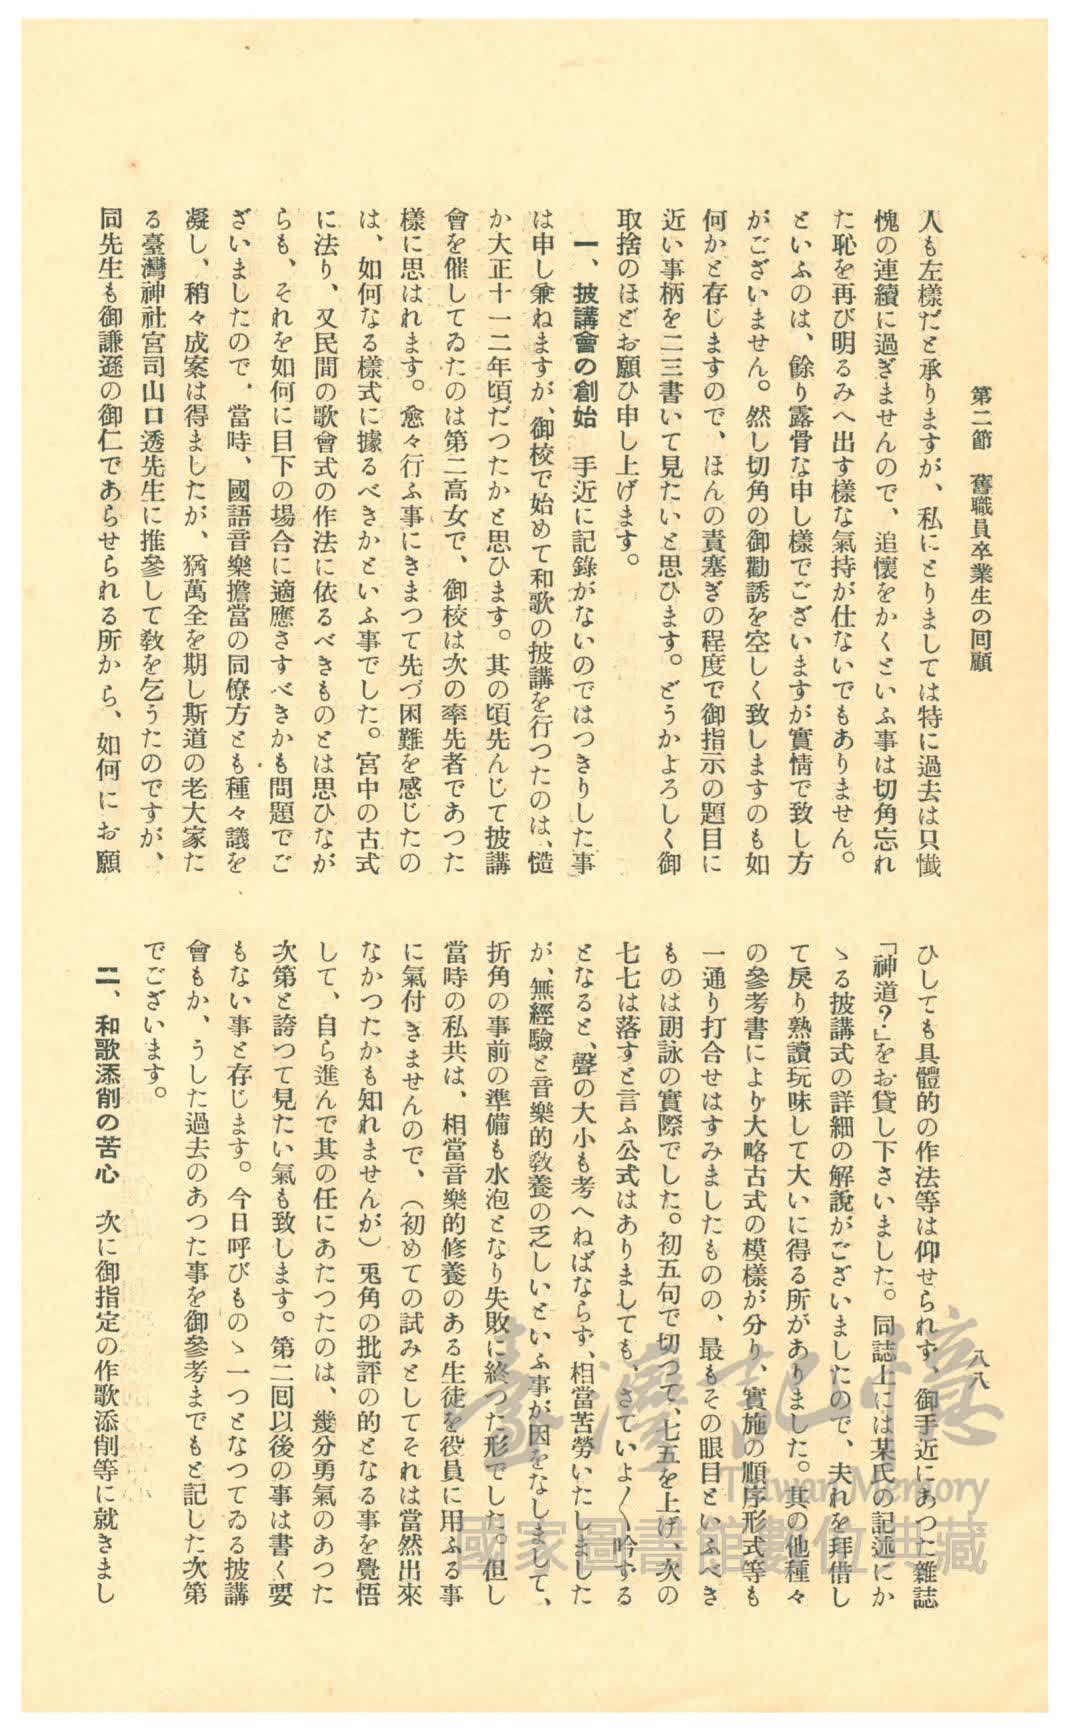 第二節　舊職員卒業生の囘顧
八八
人も左樣だと承りますが、私にとりましては特に過去は只懺
愧の連續に過ぎませんので、追懷をかくといふ事は切角忘れ
た恥を再び明るみへ出す樣な氣持が仕ないでもありません。
といふのは、餘り露骨な申し樣でございますが實情で致し方
がございません。然し切角の御勸誘を空しく致しますのも如
何かと存じますので、ほんの責塞ぎの程度で御指示の題目に
近い事柄を二三書いて見たいと思ひます。どうかよろしく御
取捨のほどお願ひ申し上げます。
一、披講會の創始　手近に記錄がないのではつきりした事
は申し兼ねますが、御校で始めて和歌の披講を行つたのは、慥
か大正十一二年頃だつたかと思ひます。其の頃先んじて披講
會を催してゐたのは第二高女で、御校は次の率先者であつた
樣に思はれます。愈々行ふ事にきまつて先づ困難を感じたの
は、如何なる樣式に據るべきかといふ事でした。宮中の古式
に法り、又民間の歌會式の作法に依るべきものとは思ひなが
らも、それを如何に目下の場合に適應さすべきかも問題でご
ざいましたので、當時、國語音樂擔當の同僚方とも種々議を
凝し、稍々成案は得ましたが、猶萬全を期し斯道の老大家た
る臺灣神社宮司山口透先生に推參して敎を乞うたのですが、
同先生も御謙遜の御仁であらせられる所から、如何にお願
ひしても具體的の作法等は仰せられず、御手近にあつた雜誌
「神道?」をお貸し下さいました。同誌上には某氏の記述にか
ゝる披講式の詳細の解說がございましたので、夫れを拜借し
て戾り熟讀玩味して大いに得る所がありました。其の他種々
の參考書により大略古式の模樣が分り、實施の順序形式等も
一通り打合せはすみましたものの、最もその眼目といふべき
ものは朗詠の實際でした。初五句で切つて、七五を上げ、次の
七七は落すと言ふ公式はありましても、さていよ〱吟する
となると、聲の大小も考へねばならず、相當苦勞いたしました
が、無經驗と音樂的敎養の乏しいといふ事が因をなしまして、
折角の事前の準備も水泡となり失敗に終つた形でした。但し
當時の私共は、相當音樂的修養のある生徒を役員に用ふる事
に氣付きませんので、（初めての試みとしてそれは當然出來
なかつたかも知れませんが）兎角の批評の的となる事を覺悟
して、自ら進んで其の任にあたつたのは、幾分勇氣のあつた
次第と誇つて見たい氣も致します。第二囘以後の事は書く要
もない事と存じます。今日呼びものゝ一つとなつてゐる披講
會もか、うした過去のあつた事を御參考までもと記した次第
でございます。
二、和歌添削の苦心　次に御指定の作歌添削等に就きまし
臺灣記憶
Taiwan Memory
國家圖書館數位典藏